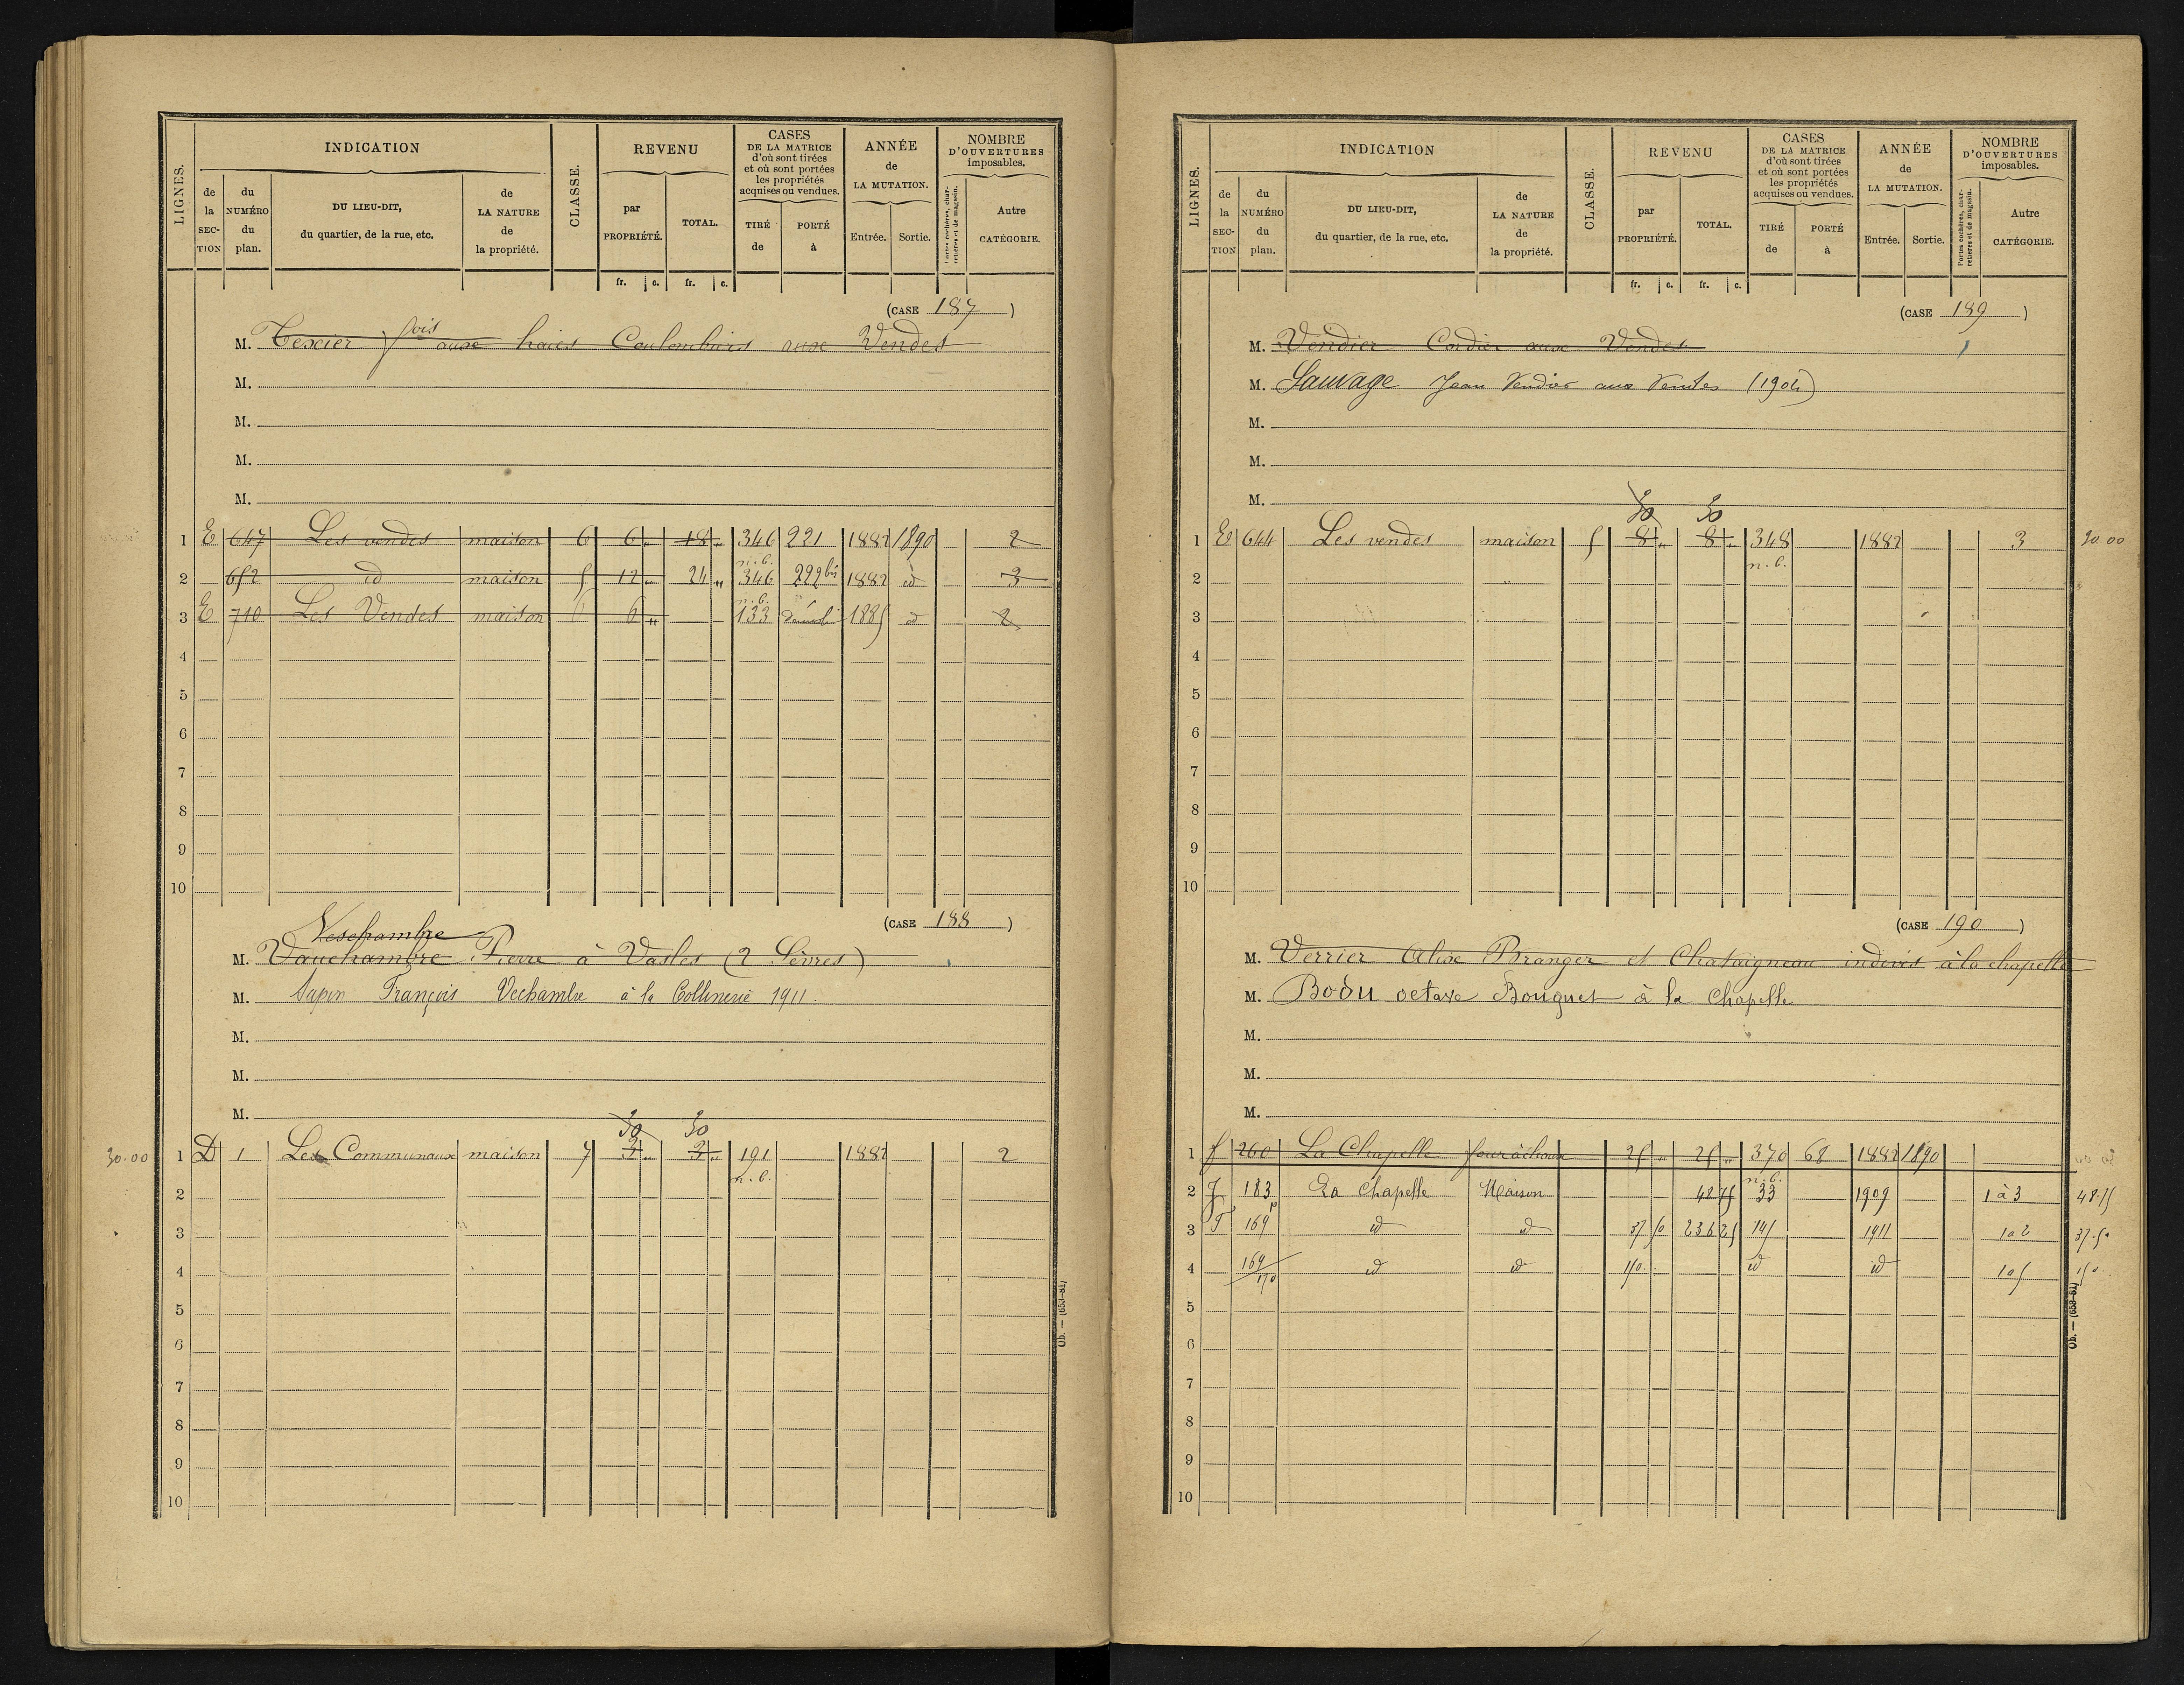 LIGNES.
INDICATION
de la SECTION
du NUMÉRO du plan.
DU LIEU-DIT, du quartier, de la rue, etc.
de LA NATURE de la propriété.
CLASSE.
REVENU
par PROPRIÉTÉ.
TOTAL.
CASES DE LA MATRICE d'où sont tirées et où sont portées les propriétés acquises ou vendues.
TIRÉ de
PORTÉ à
ANNÉE de LA MUTATION.
Entrée. Sortie.
NOMBRE D'OUVERTURES imposables.
Portes cochères, charretières et de magasin.
Autre CATÉGORIE.
fr. c. fr. c.
(CASE 187)
M. Texier fois aux haies Coulombiers aux Vendes
M.
M.
M.
M.
1 E 647 Les vendes maison 6 6 " 18 " 346 221 1882 1890 2
n.b.
2 652 id maison 5 12 " 24 " 346 222 bis 1882 id 3
n.b.
3 E 710 Les Vendes maison 6 6 " 133 démoli 1885 id 2
4
5
6
7
8
9
10
(CASE 188)
Veschambre
M. Vauchambre Pierre à Vasles (2 Sèvres)
M. Sapin François Vechambre à la Collinerie 1911.
M.
M.
M.
30 30
30.00 1 D 1 Les Communaux maison 7 3 " 3 " 191 1882 2
n.b.
2
3
4
5
6
7
8
9
10
Ob. — (653-81)
LIGNES.
INDICATION
de la SECTION
du NUMÉRO du plan.
DU LIEU-DIT, du quartier, de la rue, etc.
de LA NATURE de la propriété.
CLASSE.
REVENU
par PROPRIÉTÉ.
TOTAL.
CASES DE LA MATRICE d'où sont tirées et où sont portées les propriétés acquises ou vendues.
TIRÉ de
PORTÉ à
ANNÉE de LA MUTATION.
Entrée. Sortie.
NOMBRE D'OUVERTURES imposables.
Portes cochères, charretières et de magasin.
Autre CATÉGORIE.
fr. c. fr. c.
(CASE 189)
M. Vendier Cordier aux Vendes
M. Sauvage Jean Vendier aux Ventes (1904)
M.
M.
M.
30 30
1 E 644 Les vendes maison 5 8 " 8 " 348 1882 3 30.00
n.b.
2
3
4
5
6
7
8
9
10
(CASE 190)
M. Verrier Alexe Branger et Chataigneau indivis à la chapelle
M. Bodu octave Bouquet à la Chapelle
M.
M.
M.
1 f 260 La Chapelle four à chaux 25 " 25 " 370 68 1882 1890
n.b.
2 J 183 La Chapelle Maison 48 75 33 1909 1 à 3 48.75
3 F 169 p id id 37 50 236 25 145 1911 1 à 2 37.50
4 169/170 id id 150. id id 1 à 5 150.
5
6
7
8
9
10
Ob. — (653-81)